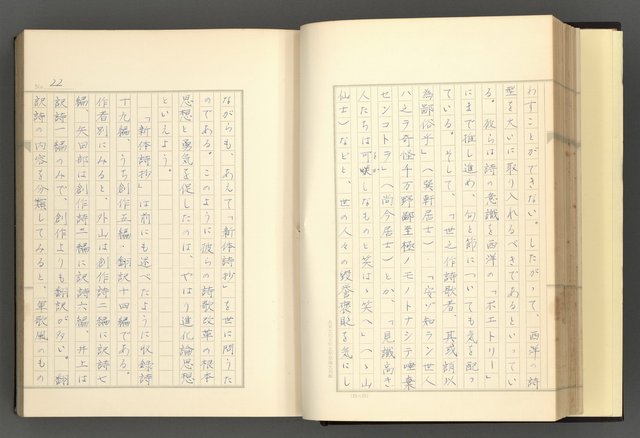 わすことができない。したがって、西洋の詩
型を大いに取り入れるべきであるといってい
る。彼らは詩の意識を西洋の「ポエトリー」
にまで推し進め、句と節についても気を配っ
ている。そして、「世之作詩歌者、其或胡以
為鄙俗乎」(巽軒居士)・「安ゾ知ラン世人
ハ之ラ奇怪千万野鄙至極ノモノトナシテ唾棄
センコトヲ」(尚今居士)とか、「見識高き
人たちは可咲しなものと笑はゞ笑へ」(ゝ山
仙士)などと、世の人々の毀誉褒貶を気にし
22
ながらも、あえて「新体詩抄」を世に問うた
のである。このように彼らの詩歌改革の根本
思想と勇気を促したのは、やはり進化論思想
といえよう。
「新体詩抄」は前にも述べたように収録詩
十九編、うち創作五編・翻訳十四編である。
作者別にみると、外山は創作詩二編に訳詩七
編、矢田部は創作詩二編に訳詩六編、井上は
訳詩一編のみで、創作よりも翻訳が多い。翻
訳詩の内容を分類してみると、軍歌風のもの